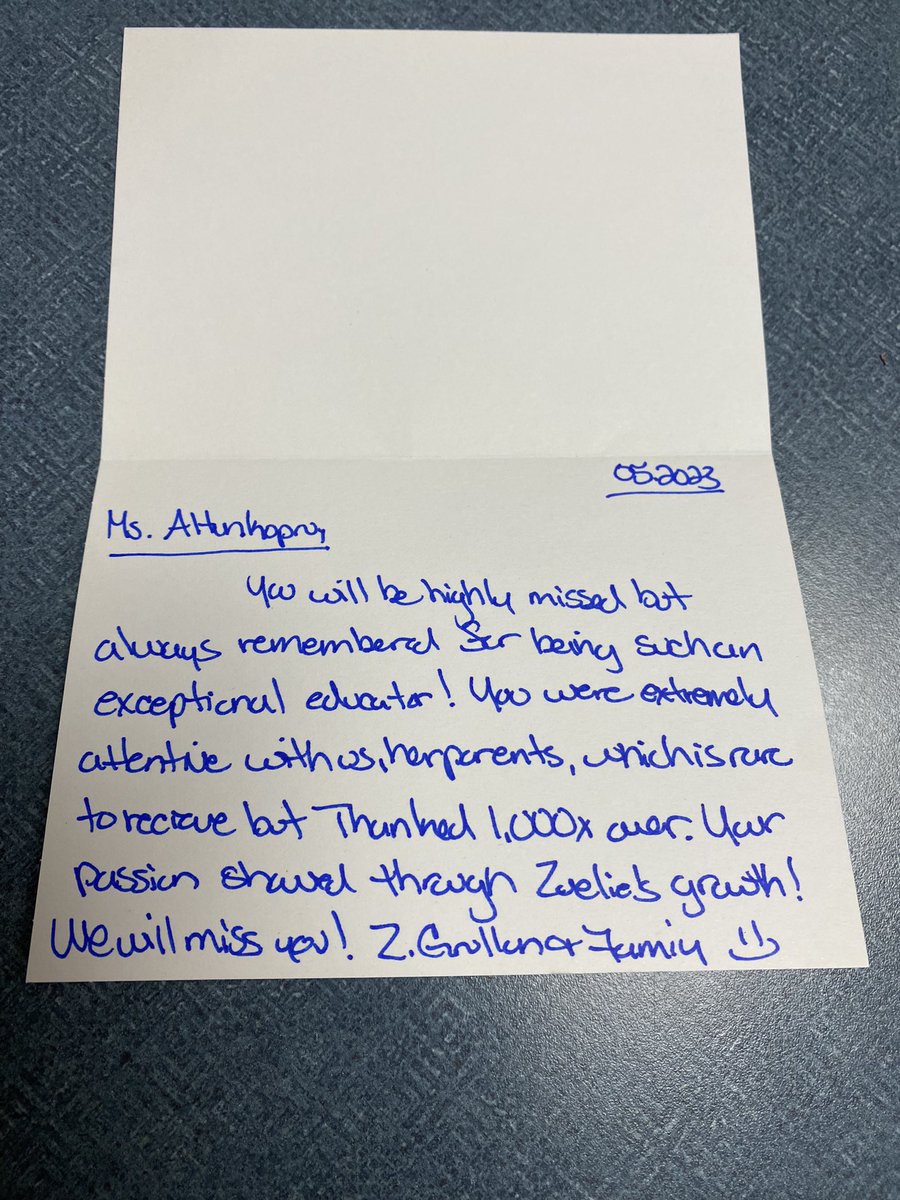 05.2023
Ms.
You will be highly missed but
always remembered for being such an
exceptional educator! You were extremely
attentive with us, her parents, which is rare
to recieve but Thanked 1,000x over. Your
passion showed through Zoelie's growth!
We will miss you! Z. & Family